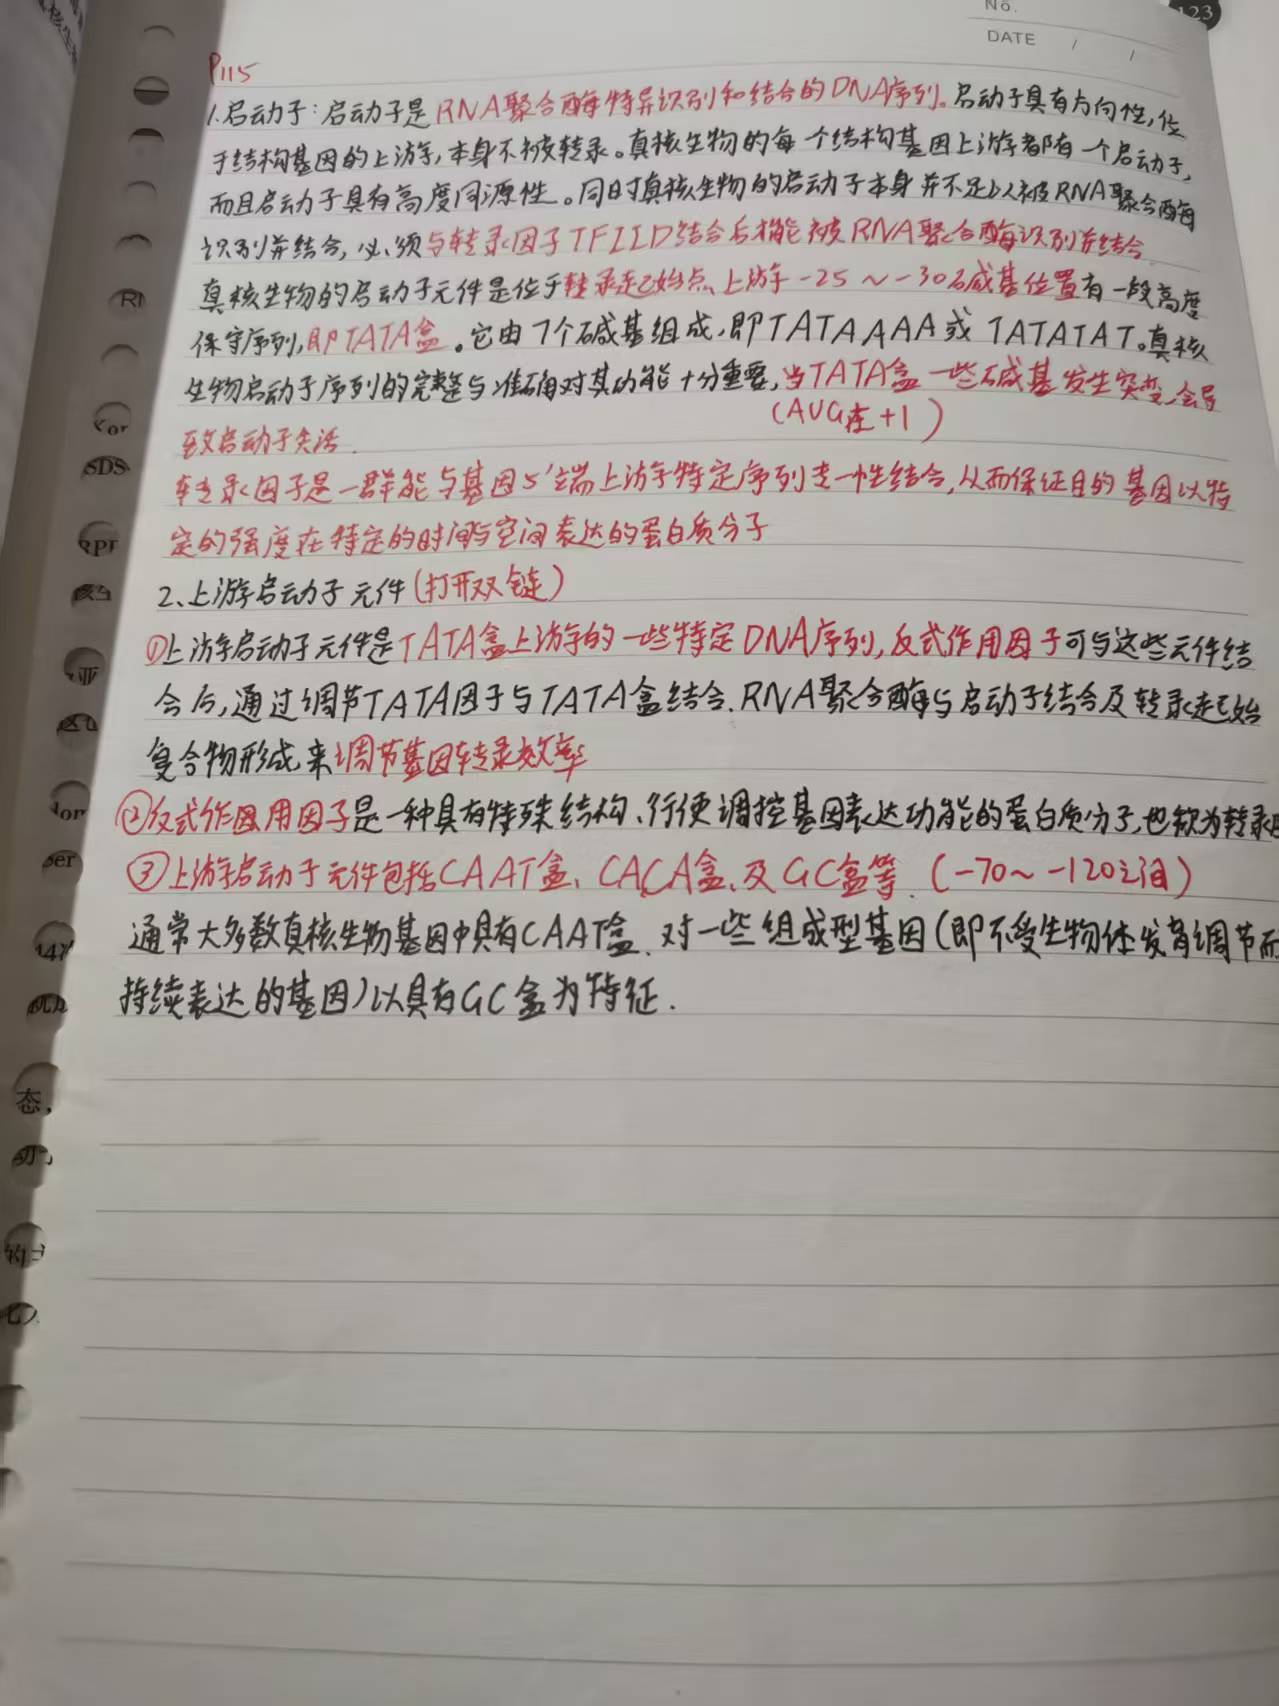 No.
123
DATE / /
P115
1.启动子:启动子是RNA聚合酶特异识别和结合的DNA序列。启动子具有方向性,位
于结构基因的上游,本身不被转录。真核生物的每个结构基因上游都有一个启动子,
而且启动子具有高度同源性。同时真核生物的启动子本身并不足以被RNA聚合酶
识别并结合,必须与转录因子TFIID结合后才能被RNA聚合酶识别并结合
真核生物的启动子元件是位于转录起始点上游-25~-30碱基位置有一段高度
保守序列,即TATA盒。它由7个碱基组成,即TATAAAA或TATATAT。真核
生物启动子序列的完整与准确对其功能十分重要,当TATA盒一些碱基发生突变,会导
(AUG在+1)
致启动子失活.
转录因子是一群能与基因5'端上游特定序列专一性结合,从而保证目的基因以特
定的强度在特定的时间与空间表达的蛋白质分子
2、上游启动子元件(打开双链)
①上游启动子元件是TATA盒上游的一些特定DNA序列,反式作用因子可与这些元件结
合后,通过调节TATA因子与TATA盒结合.RNA聚合酶与启动子结合及转录起始
复合物形成来调节基因转录效率
②反式作用因子是一种具有特殊结构、行使调控基因表达功能的蛋白质分子,也称为转录
③上游启动子元件包括CAAT盒、CACA盒、及GC盒等.(-70~-120之间)
通常大多数真核生物基因中具有CAAT盒.对一些组成型基因(即不受生物体发育调节而
持续表达的基因)以具有GC盒为特征.
RI
SDS
RPI
亚
ser
态,